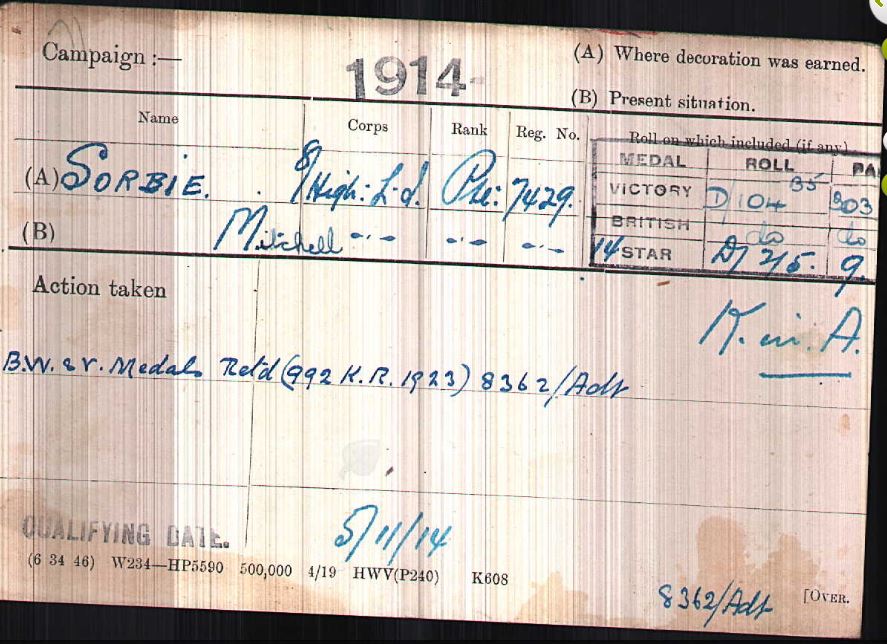 Campaign :—
1914
(A) Where decoration was earned.
(B) Present situation.
Name Corps Rank Reg. No. Roll on which included (if any)
MEDAL ROLL PA
(A) SORBIE. 8/High: L.I. Pte: 7429.
VICTORY D/104 B5 803
BRITISH do do
(B) Mitchell -"- -"- -"-
14 STAR D/2/5. 9.
Action taken
K. in. A.
B.W. & V. Medals Ret'd (992 K.R. 1923) 8362/Adt
QUALIFYING DATE. 5/11/14
(6 34 46) W234—HP5590 500,000 4/19 HWV(P240) K608
8362/Adt [OVER.